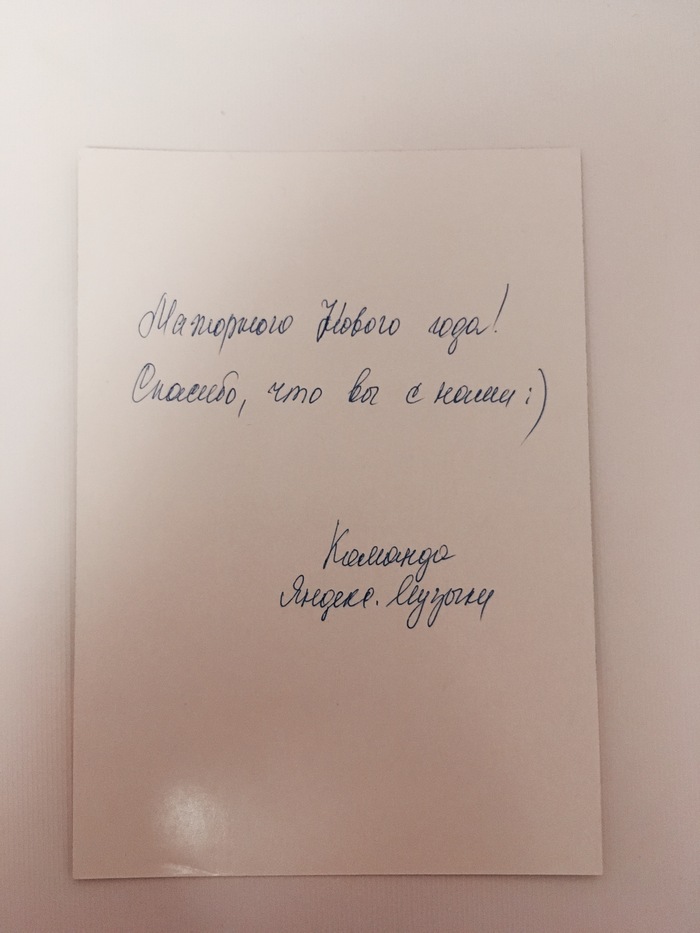 Мажорного Нового года!
Спасибо, что вы с нами :)
Команда
Яндекс.Музыки